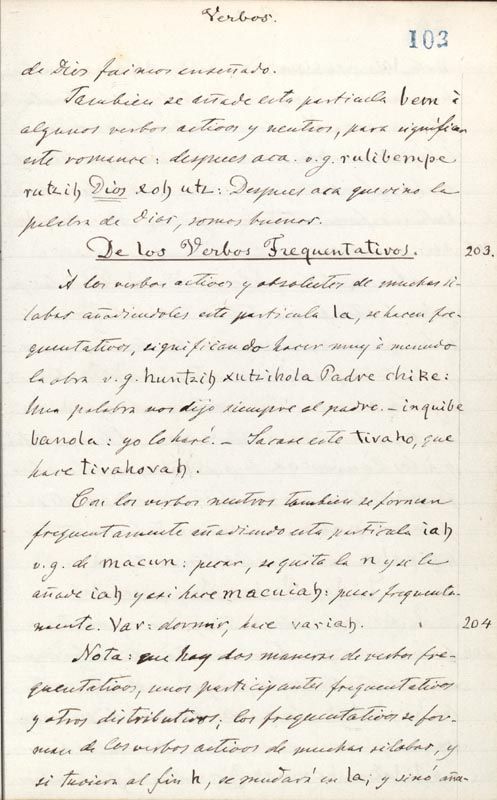 Verbos.
103
de Dios fuimos enseñado.
Tambien se añade esta particula bem à
algunos verbos activos y neutros, para significar
este romance: despues aca. v.g. rulibempe
rutzih Dios xoh utz: Despues aca que vino la
palabra de Dios, somos buenos.
De los Verbos Frequentativos. 203.
À los verbos activos y absolutos de muchas si-
labas añadiendoles esta particula la, se hacen fre-
quentativos, significando hacer muy à menudo
la obra v.g. huntzih xutzihola Padre chike:
Una palabra nos dijo siempre el padre. - inquibe
banola: yo lo haré. - Sacase este tivaho, que
hace tivahovah.
Con los verbos neutros tambien se forman
frequentamente añadiendo esta particula iah
v.g. de macun: pecar, se quita la n y se le
añade iah y asi hace macuiah: pecar frequenta-
mente. Var: dormir, hace variah. 204
Nota: que hay dos maneras de verbos fre-
quentativos, unos participantes frequentativos
y otros distributivos; los frequentativos se for-
man de los verbos activos de muchas silabas, y
si tuviera al fin h, se mudará en la; y sinó aña-